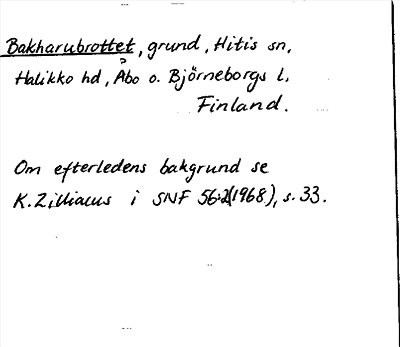 Bakharubrottet, grund, Hitis sn,
Halikko hd, Åbo o. Björneborgs l.
Finland.
Om efterledens bakgrund se
K. Zilliacus i SNF 56:2(1968), s. 33.